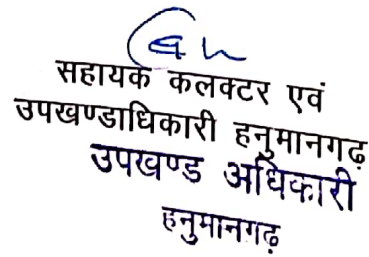 सहायक कलक्टर एवं
उपखण्डाधिकारी हनुमानगढ़
उपखण्ड अधिकारी
हनुमानगढ़